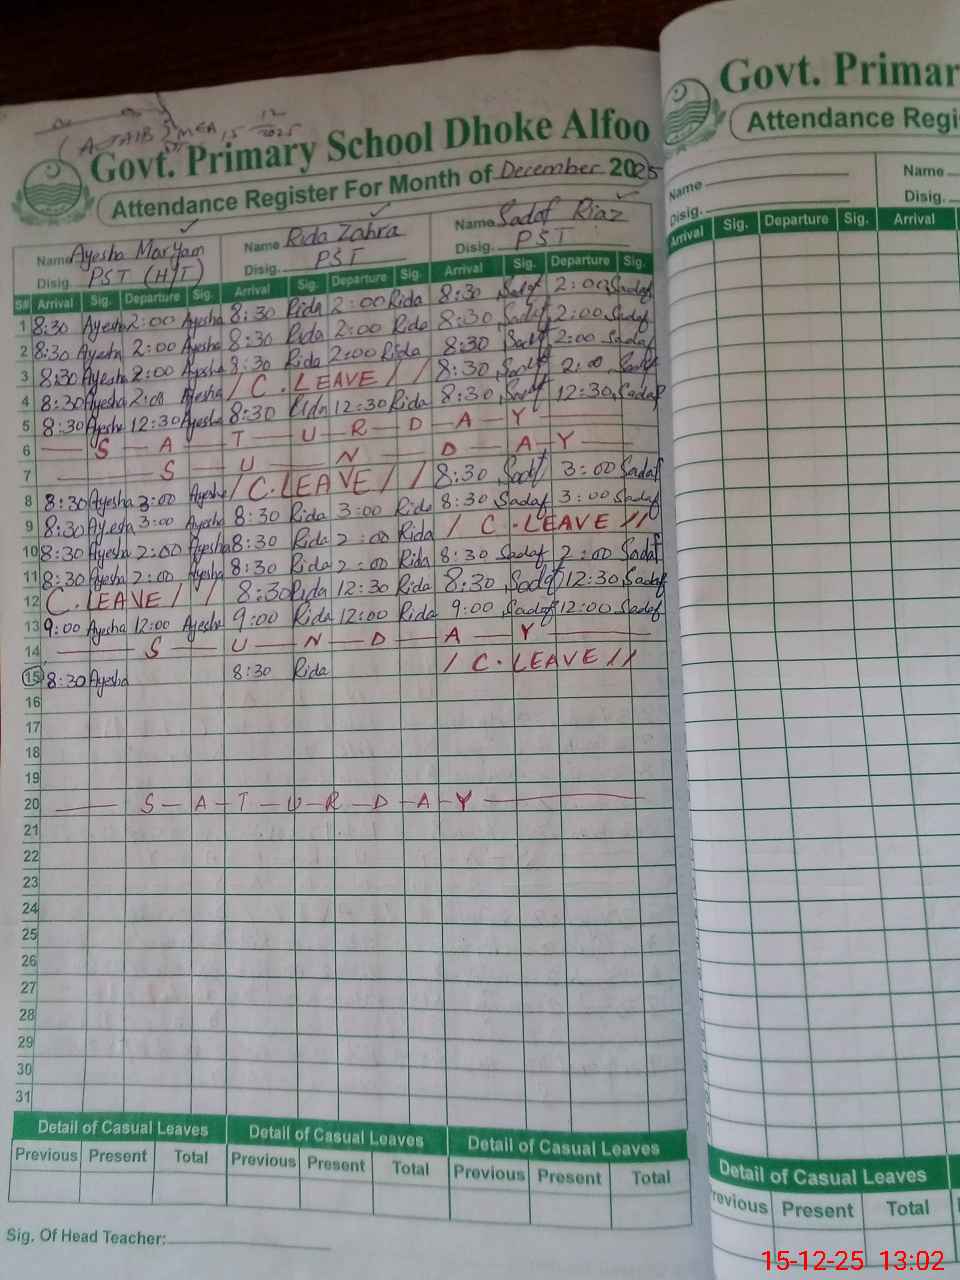 (AJAIB) MEA 15 12 2025
Govt. Primary School Dhoke Alfoo
Attendance Register For Month of December 2025
Name Ayesha Maryam Name Rida Zahra Name Sadaf Riaz
Disig. PST (H/T) Disig. PST Disig. PST
S# Arrival Sig. Departure Sig. Arrival Sig. Departure Sig. Arrival Sig. Departure Sig.
1 8:30 Ayesha 2:00 Ayesha 8:30 Rida 2:00 Rida 8:30 Sadaf 2:00 Sadaf
2 8:30 Ayesha 2:00 Ayesha 8:30 Rida 2:00 Rida 8:30 Sadaf 2:00 Sadaf
3 8:30 Ayesha 2:00 Ayesha 8:30 Rida 2:00 Rida 8:30 Sadaf 2:00 Sadaf
4 8:30 Ayesha 2:00 Ayesha / C. LEAVE // 8:30 Sadaf 2:00 Sadaf
5 8:30 Ayesha 12:30 Ayesha 8:30 Rida 12:30 Rida 8:30 Sadaf 12:30 Sadaf
6 S A T U R D A Y
7 S U N D A Y
8 8:30 Ayesha 3:00 Ayesha / C. LEAVE // 8:30 Sadaf 3:00 Sadaf
9 8:30 Ayesha 3:00 Ayesha 8:30 Rida 3:00 Rida 8:30 Sadaf 3:00 Sadaf
10 8:30 Ayesha 2:00 Ayesha 8:30 Rida 2:00 Rida / C. LEAVE //
11 8:30 Ayesha 2:00 Ayesha 8:30 Rida 2:00 Rida 8:30 Sadaf 2:00 Sadaf
12 C. LEAVE // 8:30 Rida 12:30 Rida 8:30 Sadaf 12:30 Sadaf
13 9:00 Ayesha 12:00 Ayesha 9:00 Rida 12:00 Rida 9:00 Sadaf 12:00 Sadaf
14 S U N D A Y
15 8:30 Ayesha 8:30 Rida / C. LEAVE //
16
17
18
19
20 S-A-T-U-R-D-A-Y
21
22
23
24
25
26
27
28
29
30
31
Detail of Casual Leaves Detail of Casual Leaves Detail of Casual Leaves
Previous Present Total Previous Present Total Previous Present Total
Sig. Of Head Teacher:
Govt. Primar
Attendance Regi
Name Name
Disig. Disig.
Arrival Sig. Departure Sig. Arrival
Detail of Casual Leaves
Previous Present Total
15-12-25 13:02